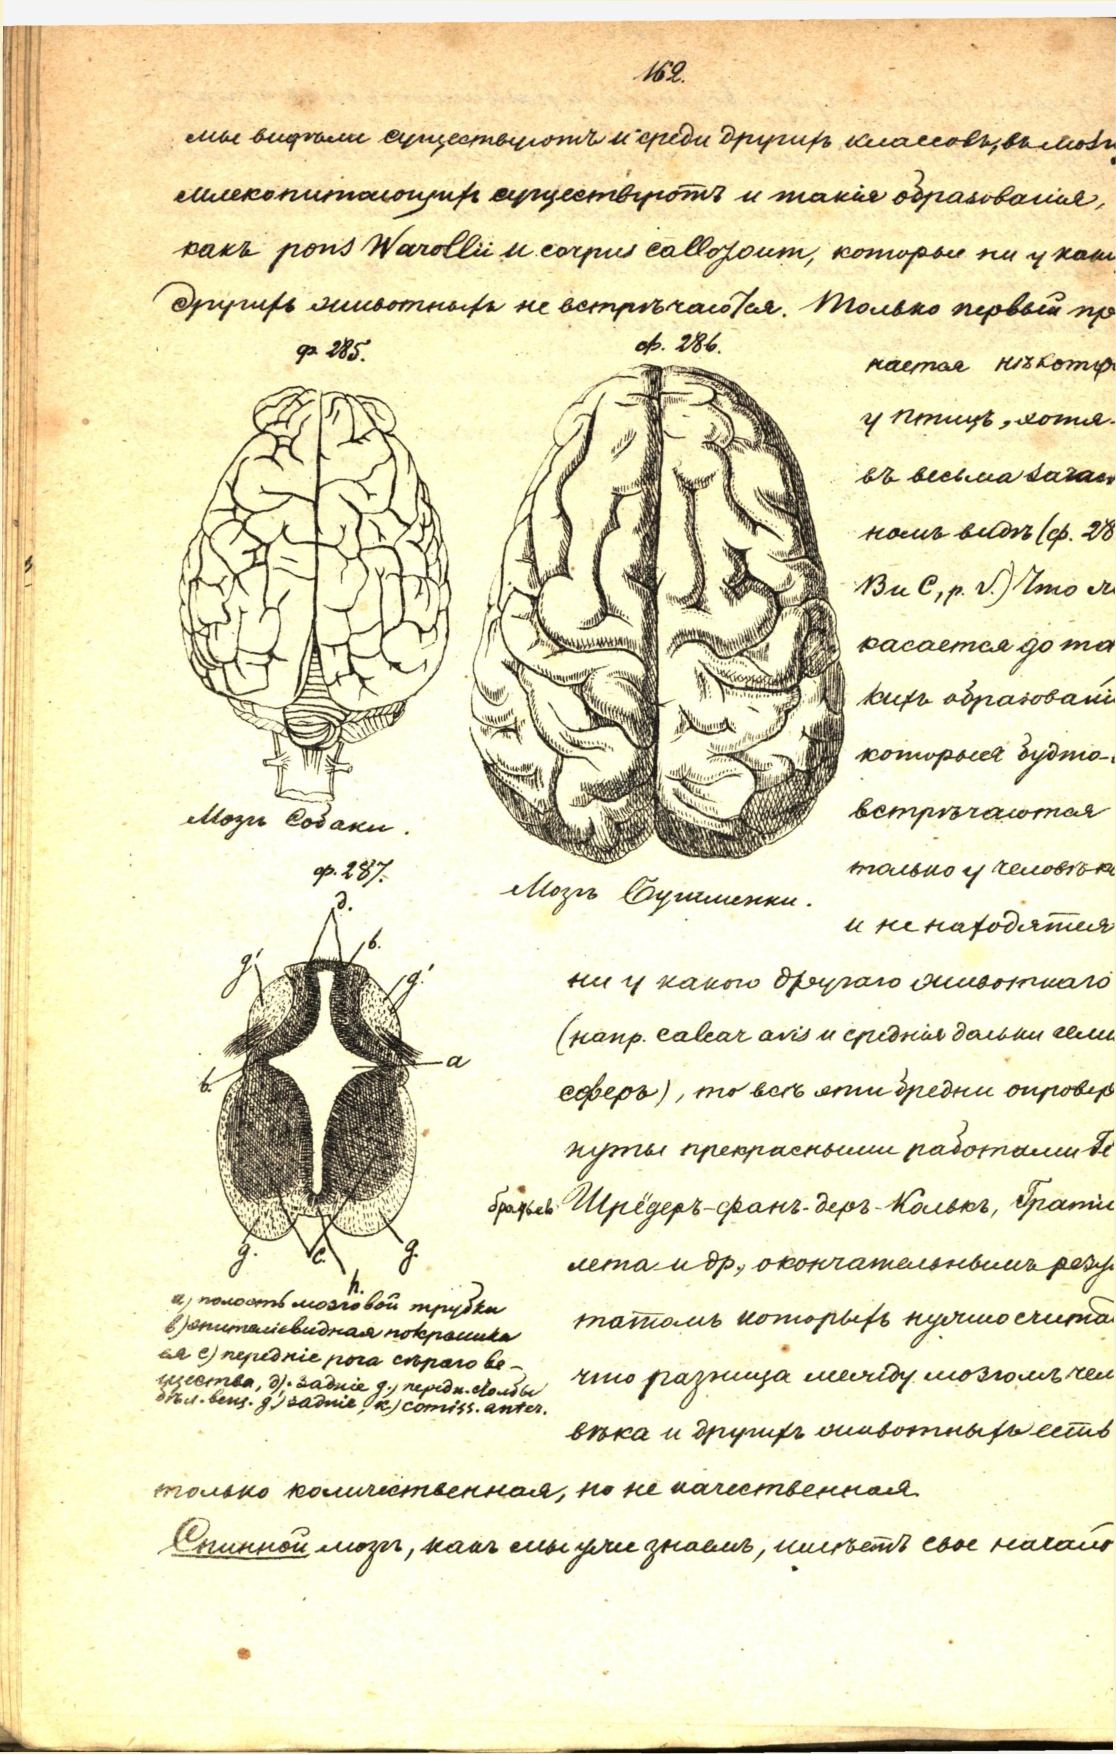 162.
мы видѣли существуютъ и среди другихъ классовъ, въ мозгу
млекопитающихъ существуютъ и такія образованія,
какъ pons Warollii и corpus callosum, которые ни у каки
другихъ животныхъ не встрѣчаются. Только первый пр
ф. 285.
ф. 286.
нается нѣкотор
у птицъ, хотя
въ весьма зачат
номъ видѣ (ф. 28
В и С, p. v.) Что
касается до та
кихъ образовані
которыя будто-
встрѣчаются
только у человѣка
и не находятся
Мозгъ Собаки.
Мозгъ Бушменки.
ф. 287.
д.
b.
g'
g'
b.
a
g.
c.
g.
h.
ни у какого другаго животнаго
(напр. calcar avis и среднія дольки геми
сферъ), то всѣ эти бредни опроверг
нуты прекрасными работами
братьевъ Шрёдеръ-фанъ-деръ-Колькъ, Грасіо
лета и др., окончательнымъ резул
татомъ которыхъ нужно счита
что разница между мозгомъ чел
вѣка и другихъ животныхъ есть
а) полость мозговой трубки
в) эпителіевидная покрышка
ея с) передніе рога сѣраго ве-
щества, д). задніе g.) передн. столбы
бѣл. вещ. g') задніе, к) comiss. anter.
только количественная, но не качественная.
Спинной мозгъ, какъ мы уже знаемъ, имѣетъ свое начало